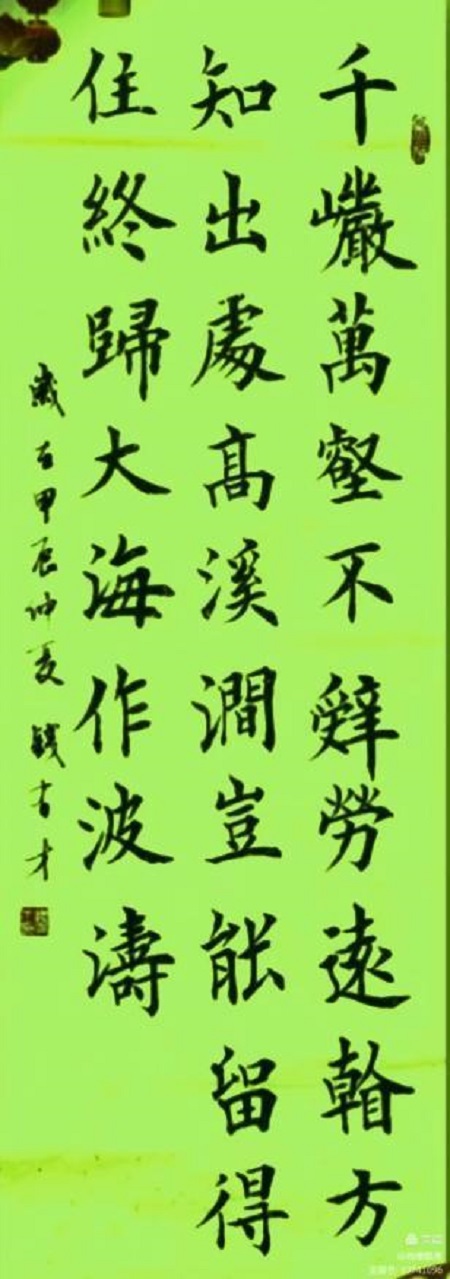 千巗萬壑不辤勞遠看方
知出處髙溪澗豈能留得
住終歸大海作波濤
歲在甲辰仲夏錢才